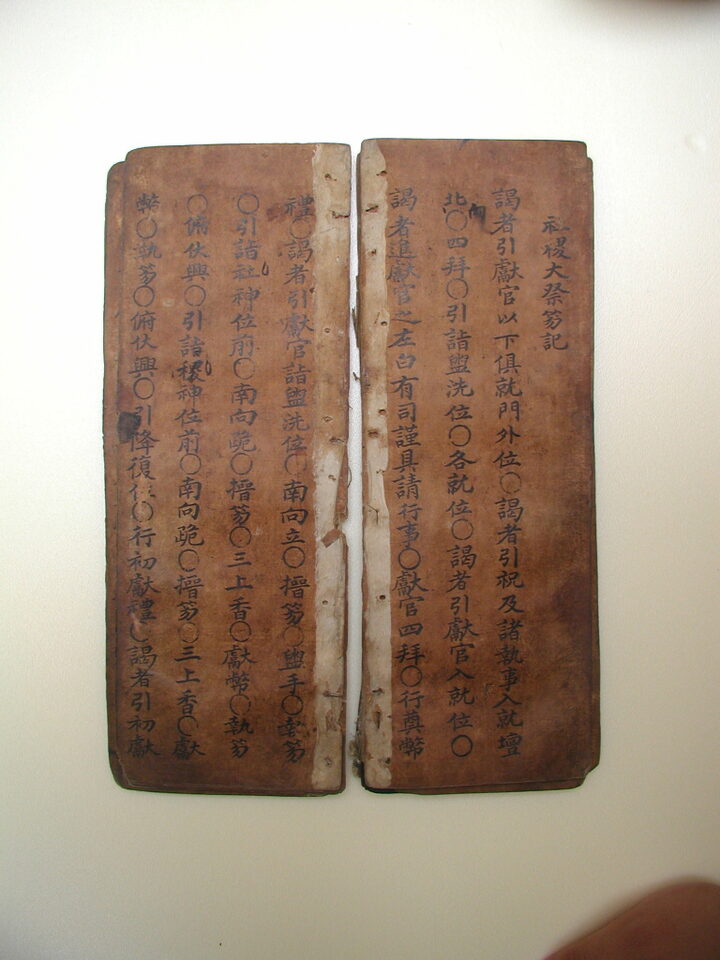 社稷大祭笏記
謁者引獻官以下俱就門外位○謁者引祝及諸執事入就壇
北○四拜○引詣盥洗位○各就位○謁者引獻官入就位○
謁者進獻官之左白有司謹具請行事○獻官四拜○行奠幣
禮○謁者引獻官詣盥洗位○南向立○搢笏○盥手○執笏
○引詣社神位前○南向跪○搢笏○三上香○獻幣○執笏
○俯伏興○引詣稷神位前○南向跪○搢笏○三上香○獻
幣○執笏○俯伏興○引降復位○行初獻禮○謁者引初獻